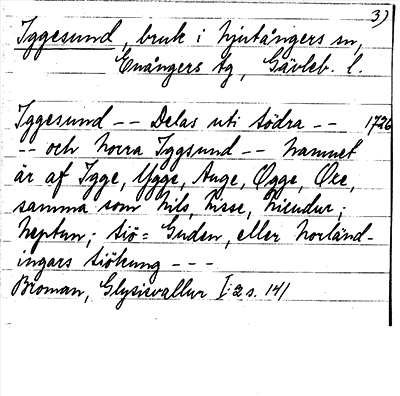 3)
Iggesund, bruk i Njutångers sn,
Enångers tg, Gävleb. l.
Iggesund -- Delas uti södra -- 1726
-- och Norra Iggsund -- Namnet
är af Igge, Ygge, Auge, Ogge, Oke,
samma som Nils, Nisse, Nicudur;
Neptun; siö=Guden, eller Norländ-
ingars siökung ---
Broman, Glysisvallur I:2 s. 141